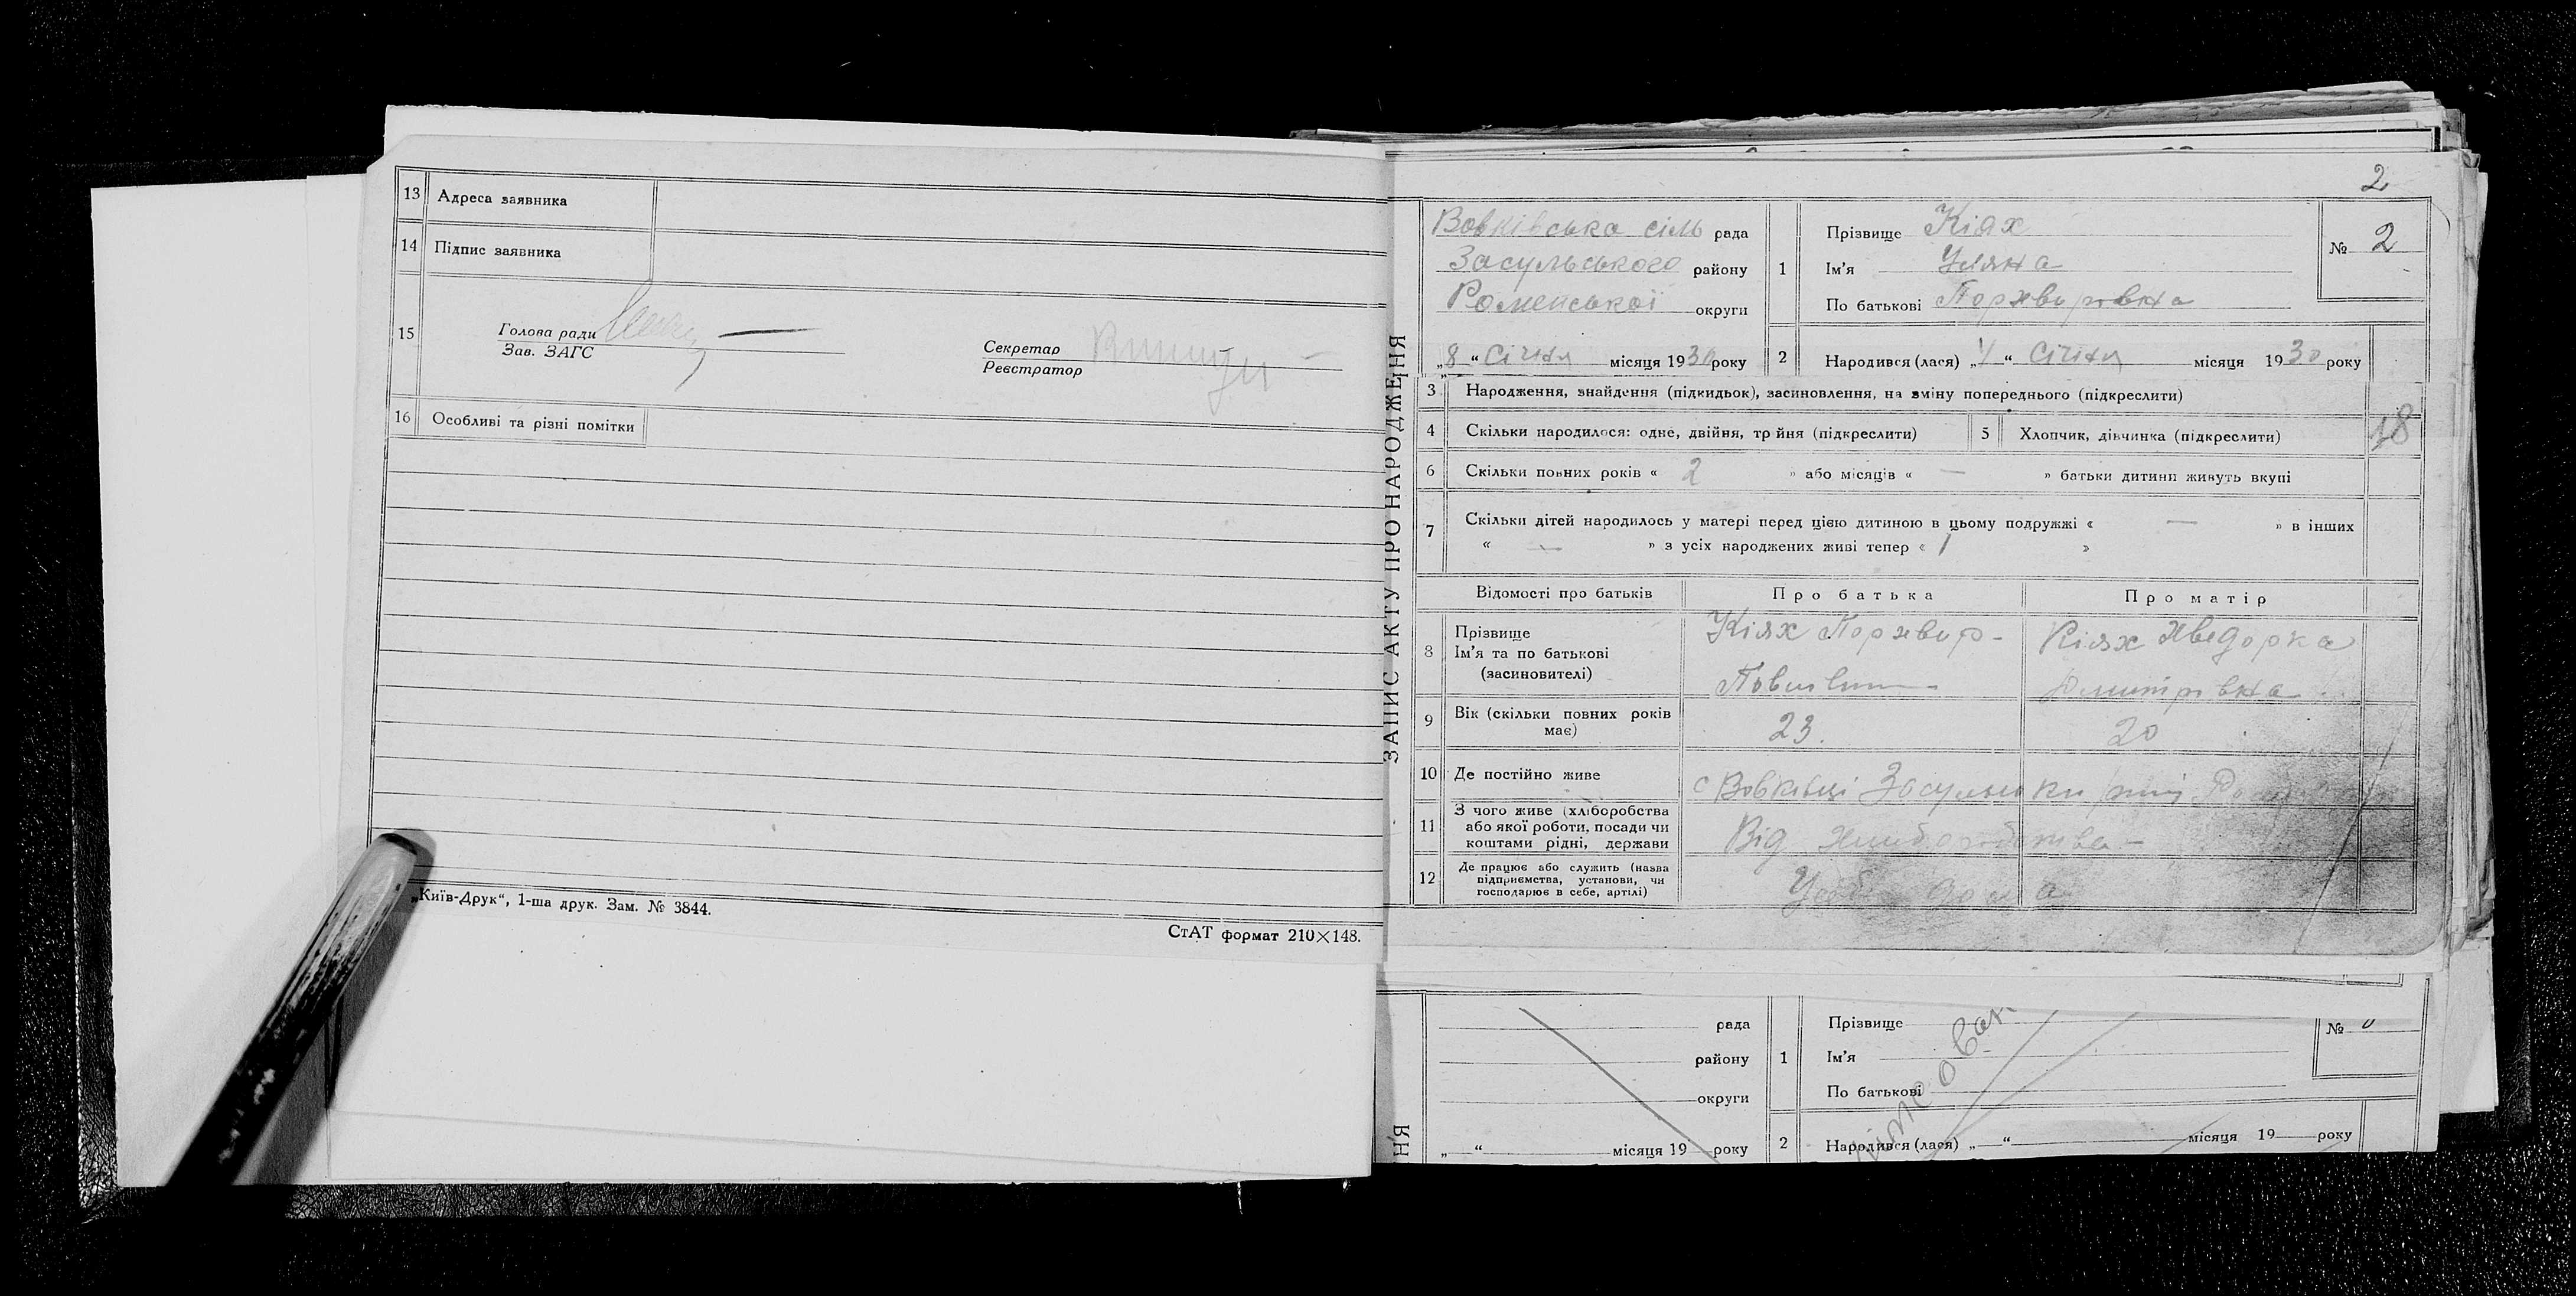 13 Адреса заявника
14 Підпис заявника
15 Голова ради
Зав. ЗАГС
Секретар
Реєстратор
16 Особливі та різні помітки
„Київ-Друк“, 1-ша друк. Зам. № 3844.
СтАТ формат 210×148.
2
ЗАПИС АКТУ ПРО НАРОДЖЕННЯ
Вовківська сіль рада
Засульського району
Роменської округи
„8“ Січня місяця 1930 року
1 Прізвище Кіях
Ім'я Уляна
По батькові Порхвировна
№ 2
2 Народився (лася) „1“ Січня місяця 1930 року
3 Народження, знайдення (підкидьок), засиновлення, на зміну попереднього (підкреслити)
4 Скільки народилося: одне, двійня, трійня (підкреслити)
5 Хлопчик, дівчинка (підкреслити)
18
6 Скільки повних років « 2 » або місяців « — » батьки дитини живуть вкупі
7 Скільки дітей народилось у матері перед цією дитиною в цьому подружжі « — » в інших
« — » з усіх народжених живі тепер « 1 »
Відомості про батьків Про батька Про матір
8 Прізвище
Ім'я та по батькові
(засиновителі)
Кіях Порхвир-
Кіях Хведорка
Дмитровна
9 Вік (скільки повних років має) 23. 20
10 Де постійно живе с Вовківці
11 З чого живе (хліборобства
або якої роботи, посади чи
коштами рідні, держави
Від хлиборобства-
12 Де працює або служить (назва
підприємства, установи, чи
господарює в себе, артілі)
дома
рада
району
округи
„ “ місяця 19 року
1 Прізвище
Ім'я
По батькові
№
2 Народився (лася) „ “ місяця 19 року
НЯ